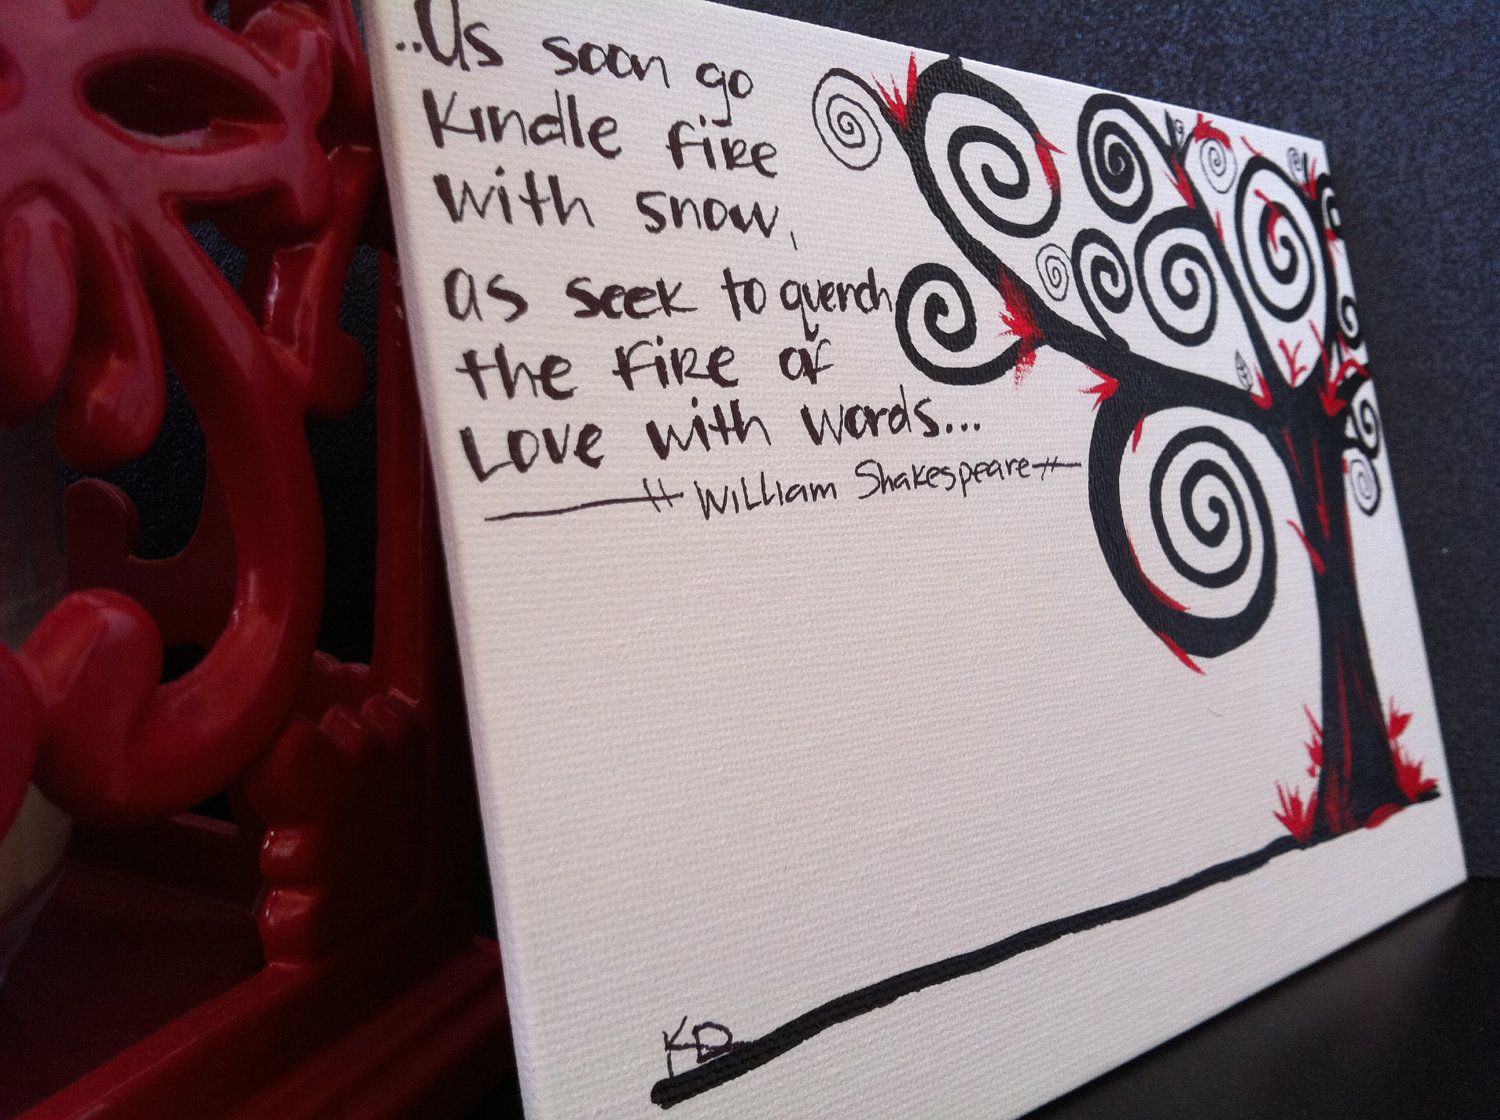 ..As soon go
Kindle fire
with snow,
as seek to quench
the fire of
Love with words...
William Shakespeare
KD